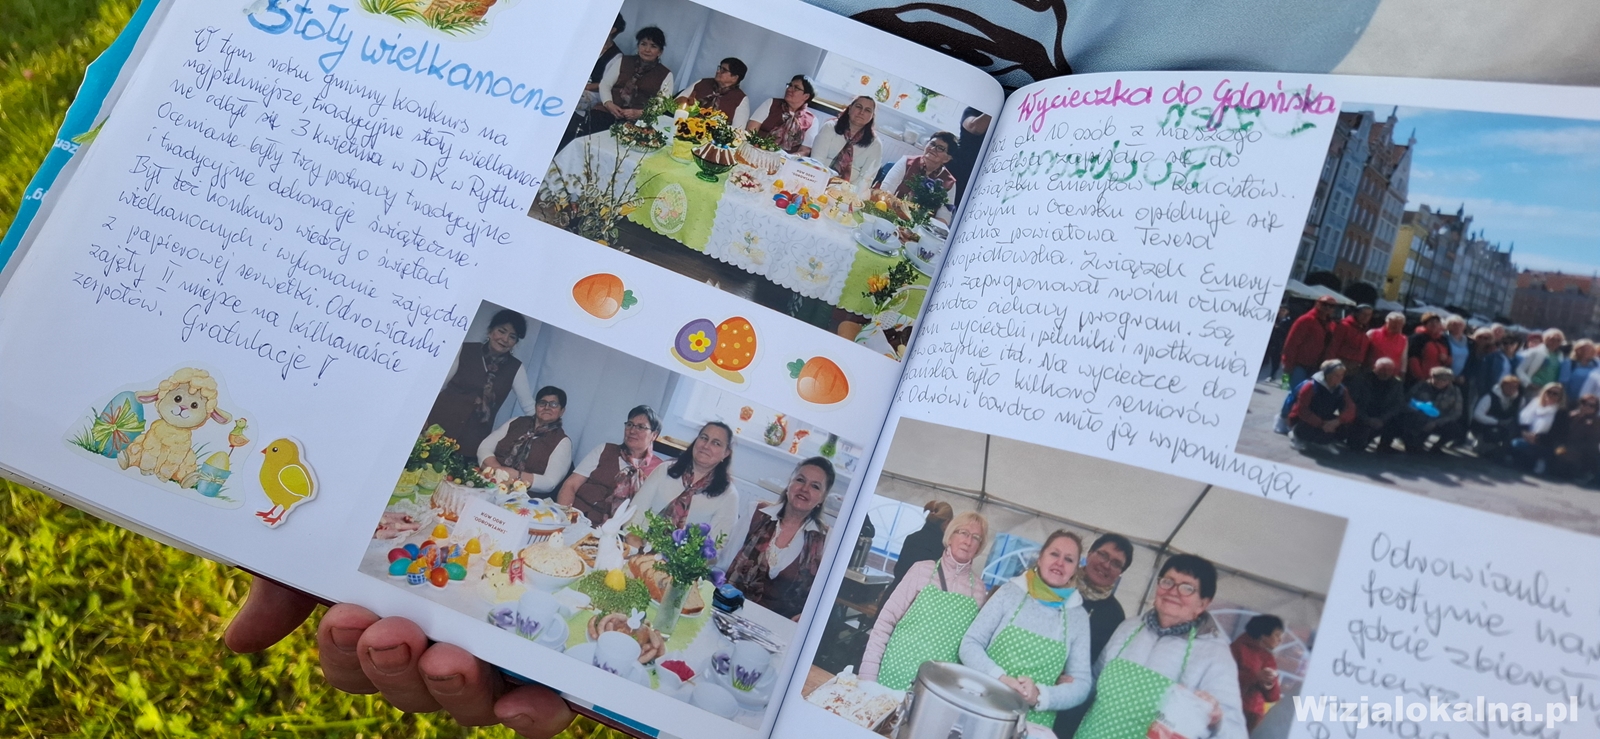 Stoły wielkanocne
W tym roku gminny konkurs na
najpiękniejsze, tradycyjne stoły wielkanoc-
ne odbył się 3 kwietnia w DK w Rytlu.
Oceniane były trzy potrawy tradycyjne
i tradycyjne dekoracje świąteczne.
Był też konkurs wiedzy o świętach
wielkanocnych i wykonanie zajączka
z papierowej serwetki. Odrowianki
zajęły II miejsce na kilkanaście
zespołów. Gratulacje!
KGW ODRY
"ODROWIANKI"
Wycieczka do Gdańska
ok 10 osób z naszego
zapisało się do
Związku Emerytów i Rencistów.
którym w Czersku opiekuje się
radna powiatowa Teresa
Związek Emery-
zaproponował swoim członkom
bardzo ciekawy program. Są
wycieczki, pikniki, spotkania
itd. Na wycieczce do
Gdańska było kilkoro seniorów
z Odrów i bardzo miło ją wspominają.
Odrowianki
festynie
gdzie zbierały
Wizjalokalna.pl